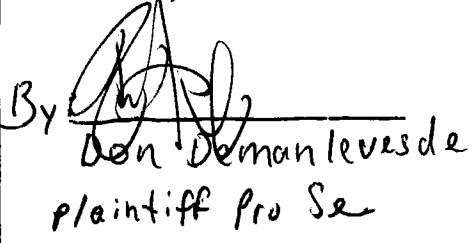 By
Don Demanlevesde
plaintiff Pro Se